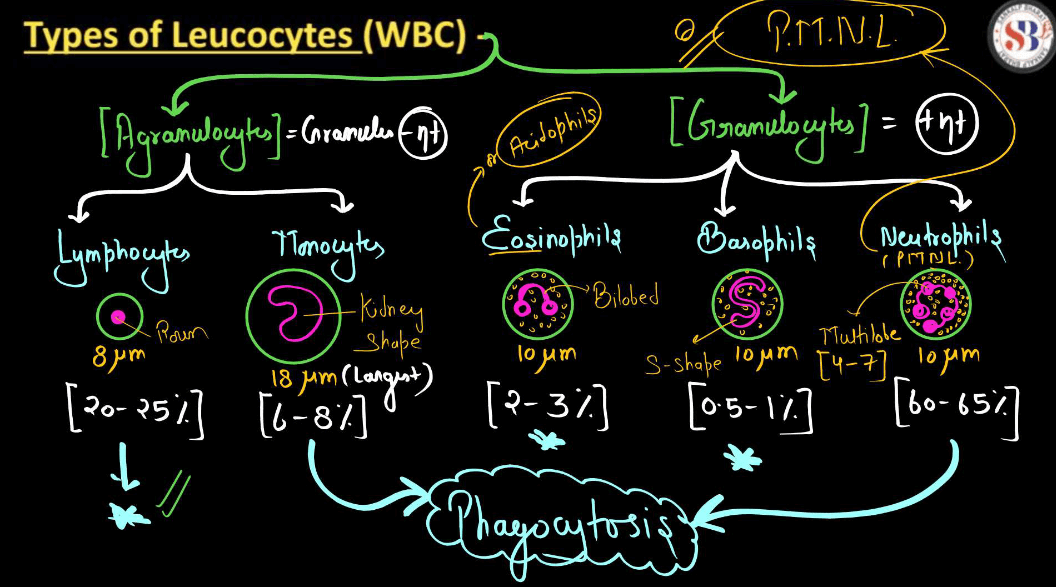 Types of Leucocytes (WBC) -
P.M.N.L.
SB
[Agranulocytes] = Granules -nt
or Acidophils
[Granulocytes] = +nt
Lymphocytes
Monocytes
Eosinophils
Basophils
Neutrophils
(P.M.N.L.)
Roun
Kidney
Shape
Bilobed
S-shape
Multilobe
[4-7]
8 μm
18 μm (Largest)
10 μm
10 μm
10 μm
[20-25%]
[6-8%]
[2-3%]
[0.5-1%]
[60-65%]
Phagocytosis